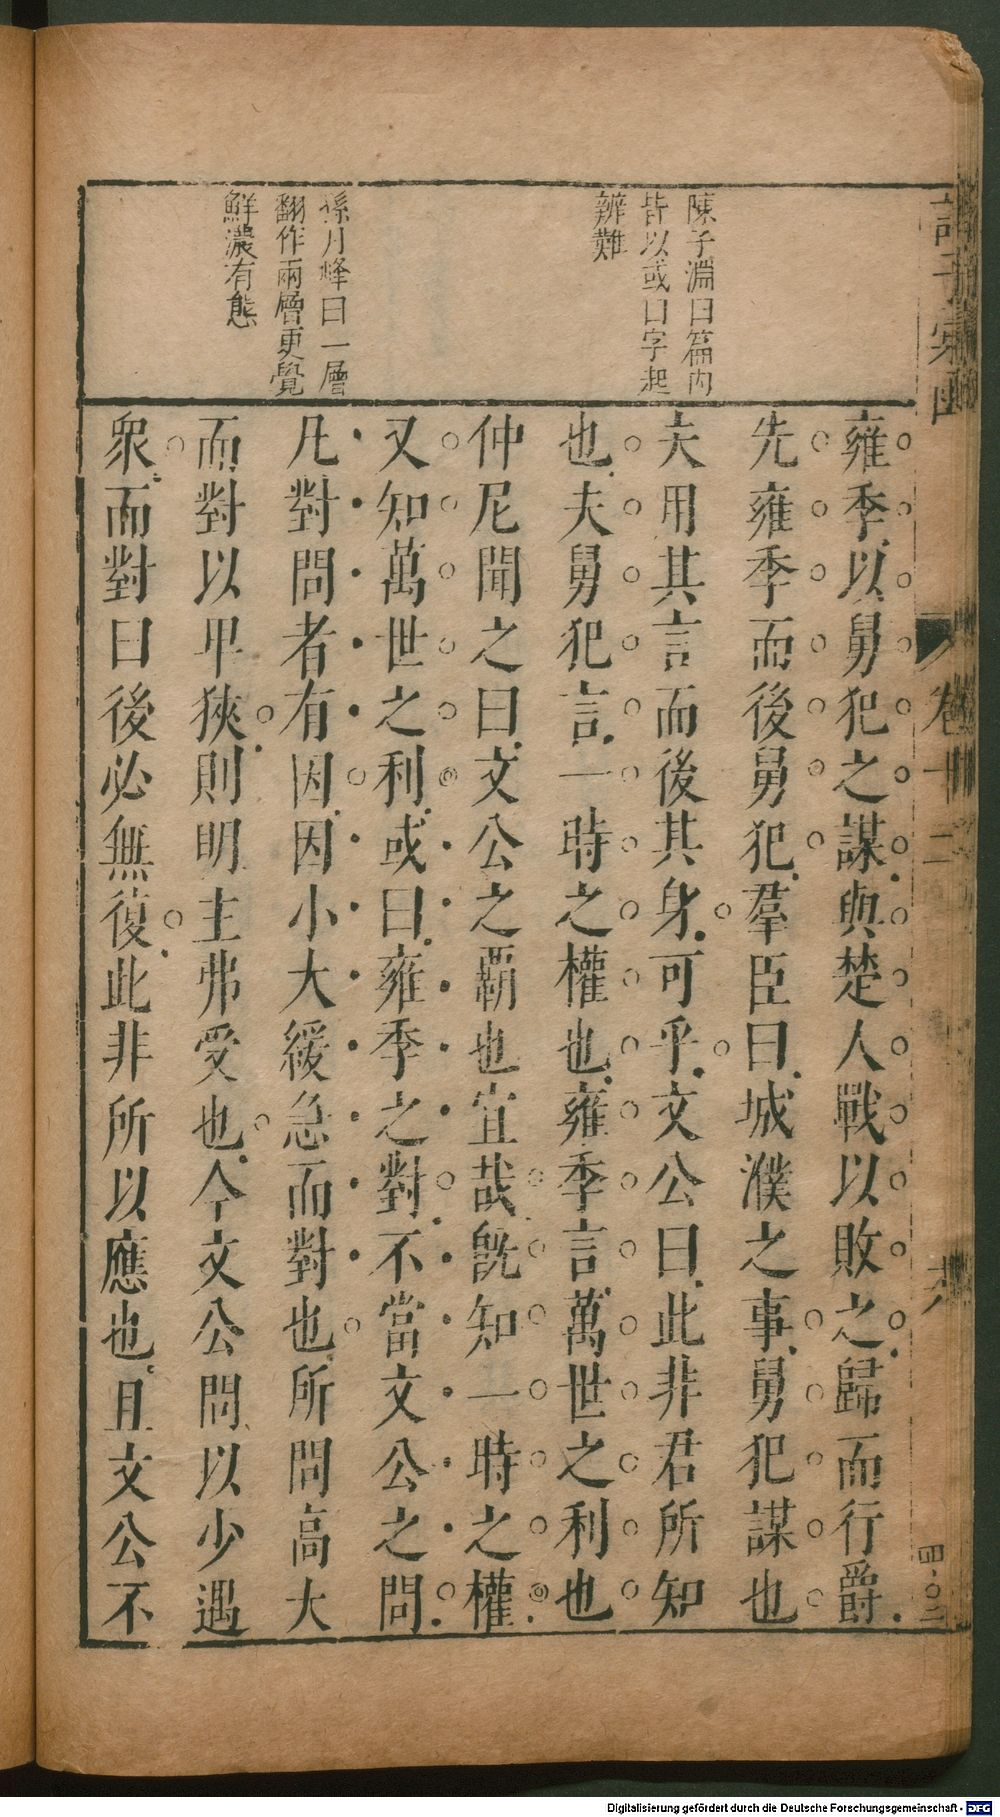 陳子淵曰篇内
皆以或曰字起
辨難
孫月峰曰一層
翻作兩層更覺
鮮濃有態
雍季以舅犯之謀與楚人戰以敗之歸而行爵
先雍季而後舅犯羣臣曰城濮之事舅犯謀也
夫用其言而後其身可乎文公曰此非君所知
也夫舅犯言一時之權也雍季言萬世之利也
仲尼聞之曰文公之霸也宜哉旣知一時之權
又知萬世之利或曰雍季之對不當文公之問
凡對問者有因因小大緩急而對也所問高大
而對以卑狹則明主弗受也今文公問以少遇
衆而對曰後必無復此非所以應也且文公不
諸子彙函
卷十二
四〇三
Digitalisierung gefördert durch die Deutsche Forschungsgemeinschaft - DFG